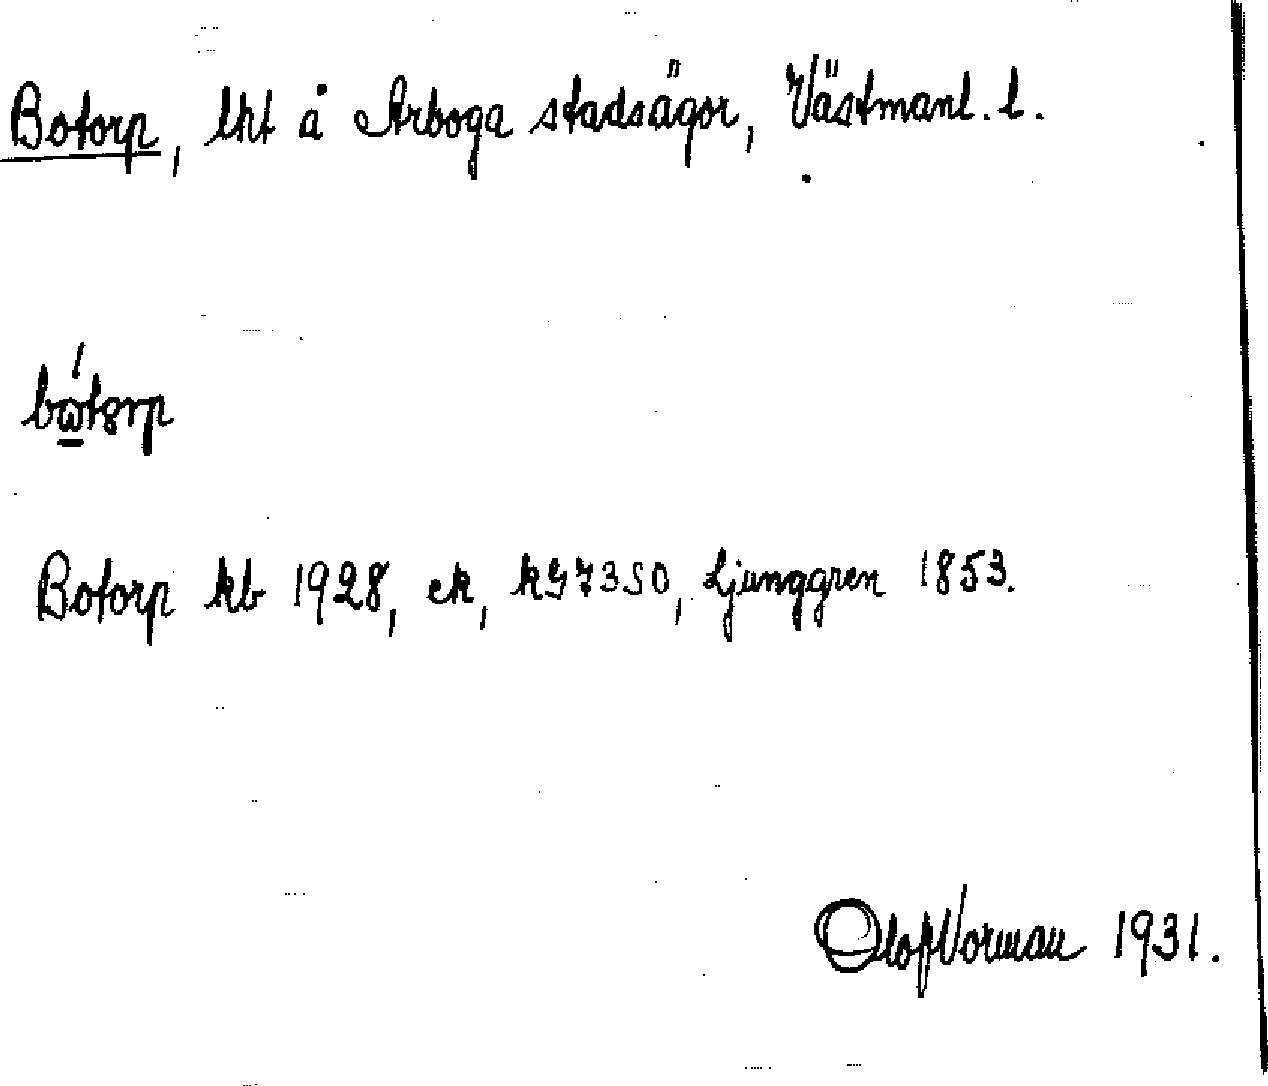 Botorp, lht å Arboga stadsägor, Västmanl. l.
Botorp kb 1928, ek, kG7350, Ljunggren 1853.
Olof Vorman 1931.